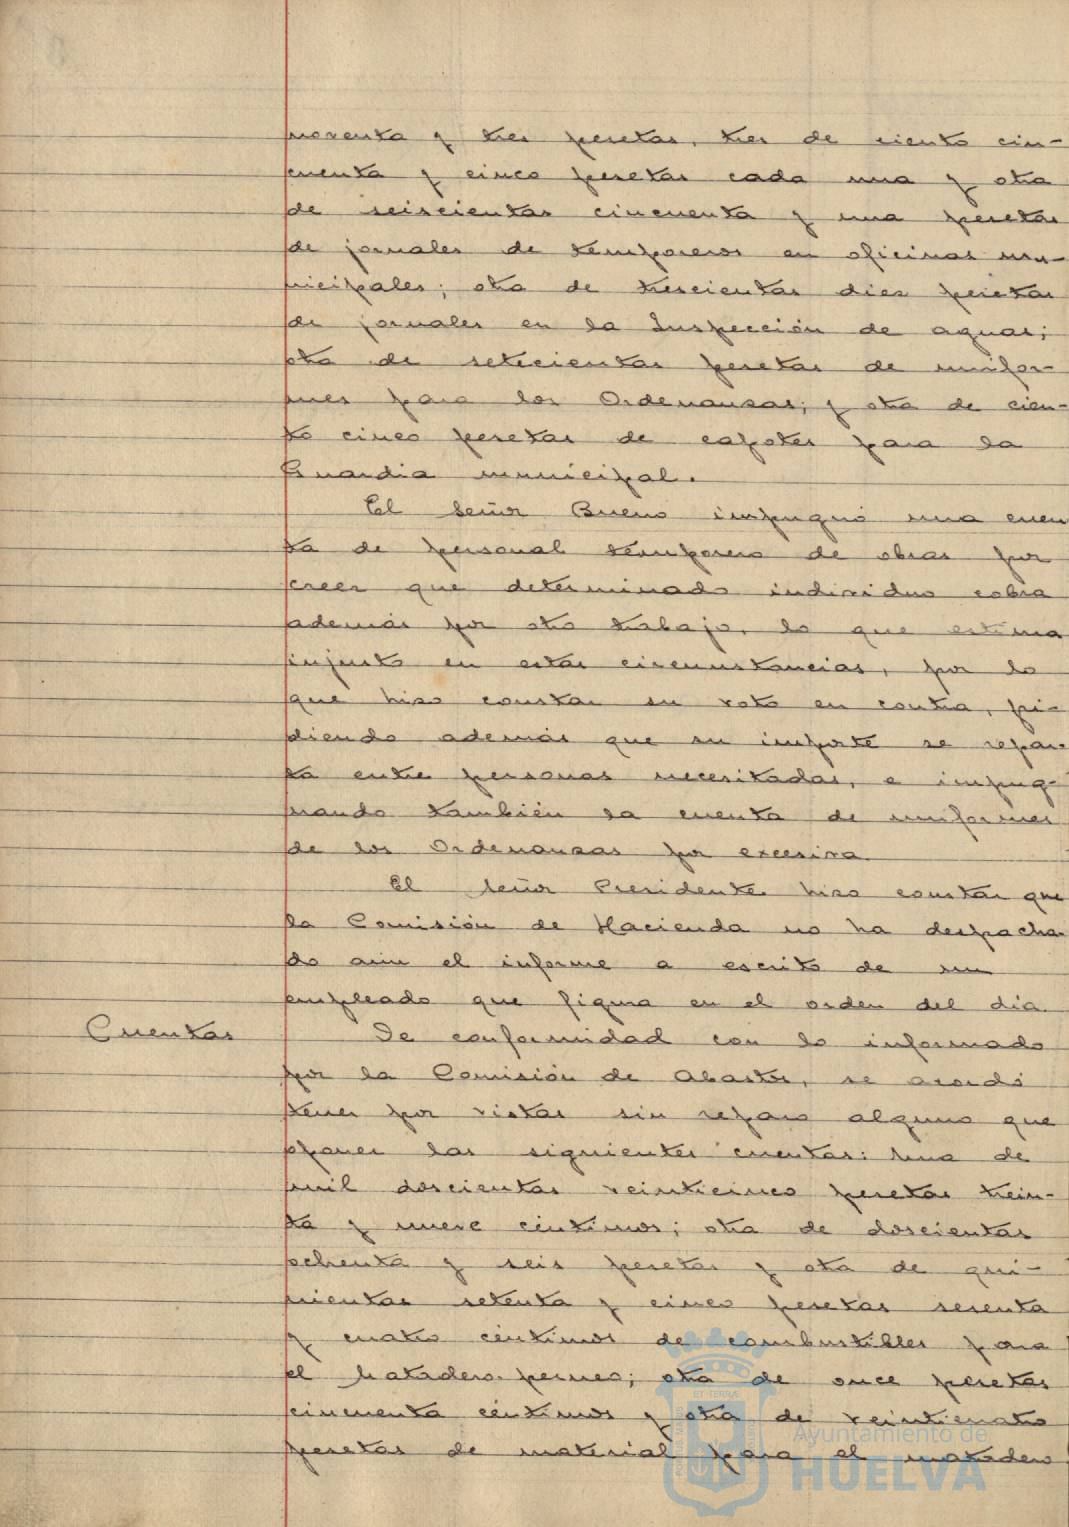 noventa y tres pesetas, tres de ciento cin-
cuenta y cinco pesetas cada una y otra
de seiscientas cincuenta y una pesetas
de jornales de temporeros en oficinas mu-
nicipales; otra de trescientas diez pesetas
de jornales en la Inspección de aguas;
otra de setecientas pesetas de unifor-
mes para los Ordenanzas; y otra de cien-
to cinco pesetas de capotes para la
Guardia municipal.
El Señor Bueno impugnó una cuen
ta de personal temporero de obras por
creer que determinado individuo cobra
además por otro trabajo, lo que estima
injusto en estas circunstancias, por lo
que hizo constar su voto en contra, pi-
diendo además que su importe se repar-
ta entre personas necesitadas, e impug-
nando también la cuenta de uniformes
de los Ordenanzas por excesiva.
El Señor Presidente hizo constar que
la Comisión de Hacienda no ha despacha-
do aún el informe a escrito de un
empleado que figura en el orden del día.
Cuentas
De conformidad con lo informado
por la Comisión de Abastos, se acordó
tener por vistas sin reparo alguno que
oponer las siguientes cuentas: Una de
mil doscientas veinticinco pesetas trein-
ta y nueve céntimos; otra de doscientas
ochenta y seis pesetas y otra de qui-
nientas setenta y cinco pesetas sesenta
y cuatro céntimos de combustibles para
el Matadero perneo; otra de once pesetas
cincuenta céntimos y otra de veinticuatro
pesetas de material para el matadero
Ayuntamiento de
HUELVA